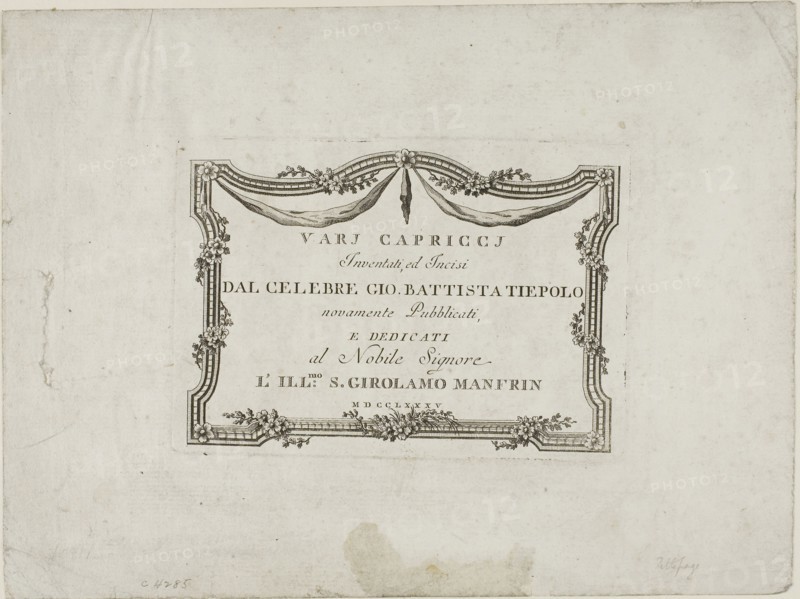 VARJ CAPRICCJ
Inventati, ed Incisi
DAL CELEBRE GIO. BATTISTA TIEPOLO
novamente Pubblicati,
E DEDICATI
al Nobile Signore
L' ILL:mo S. GIROLAMO MANFRIN
MDCCLXXXV
C 4285
PHOTO12